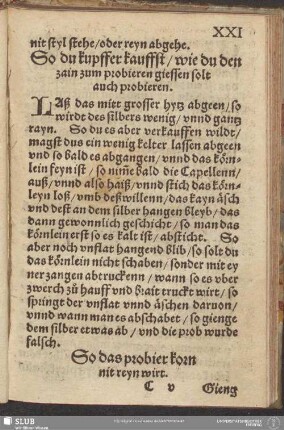 XXI
nit styl stehe/oder reyn abgehe.
So du kupffer kauffst/wie du den
zain zum probieren giessen solt
auch probieren.
LAß das mitt grosser hytz abgeen/so
wirdt des silbers wenig/vnnd gantz
rayn. So du es aber verkauffen wildt/
magst dus ein wenig kelter lassen abgeen
vnd so bald es abgangen/vnnd das körn-
lein feyn ist/so nime bald die Capellenn/
auß/vnnd also haiß/vnnd stich das körn-
leyn loß/vmb deßwillenn/das kayn äsch
vnd dest an dem silber hangen bleyb/das
dann gewonnlich geschicht/so man das
körnlein erst so es kalt ist/absticht. So
aber noch vnflat hangend blib/so solt du
das körnlein nicht schaben/sonder mit ey
ner zangen abtruckenn/wann so es vber
zwerch zů hauff vnd brait truckt wirt/so
springt der vnflat vnnd äschen daruon/
vnnd wann man es abschabet/so gienge
dem silber etwas ab/vnd die prob wurde
falsch.
So das probier korn
nit reyn wirt.
C v Gieng
SLUB